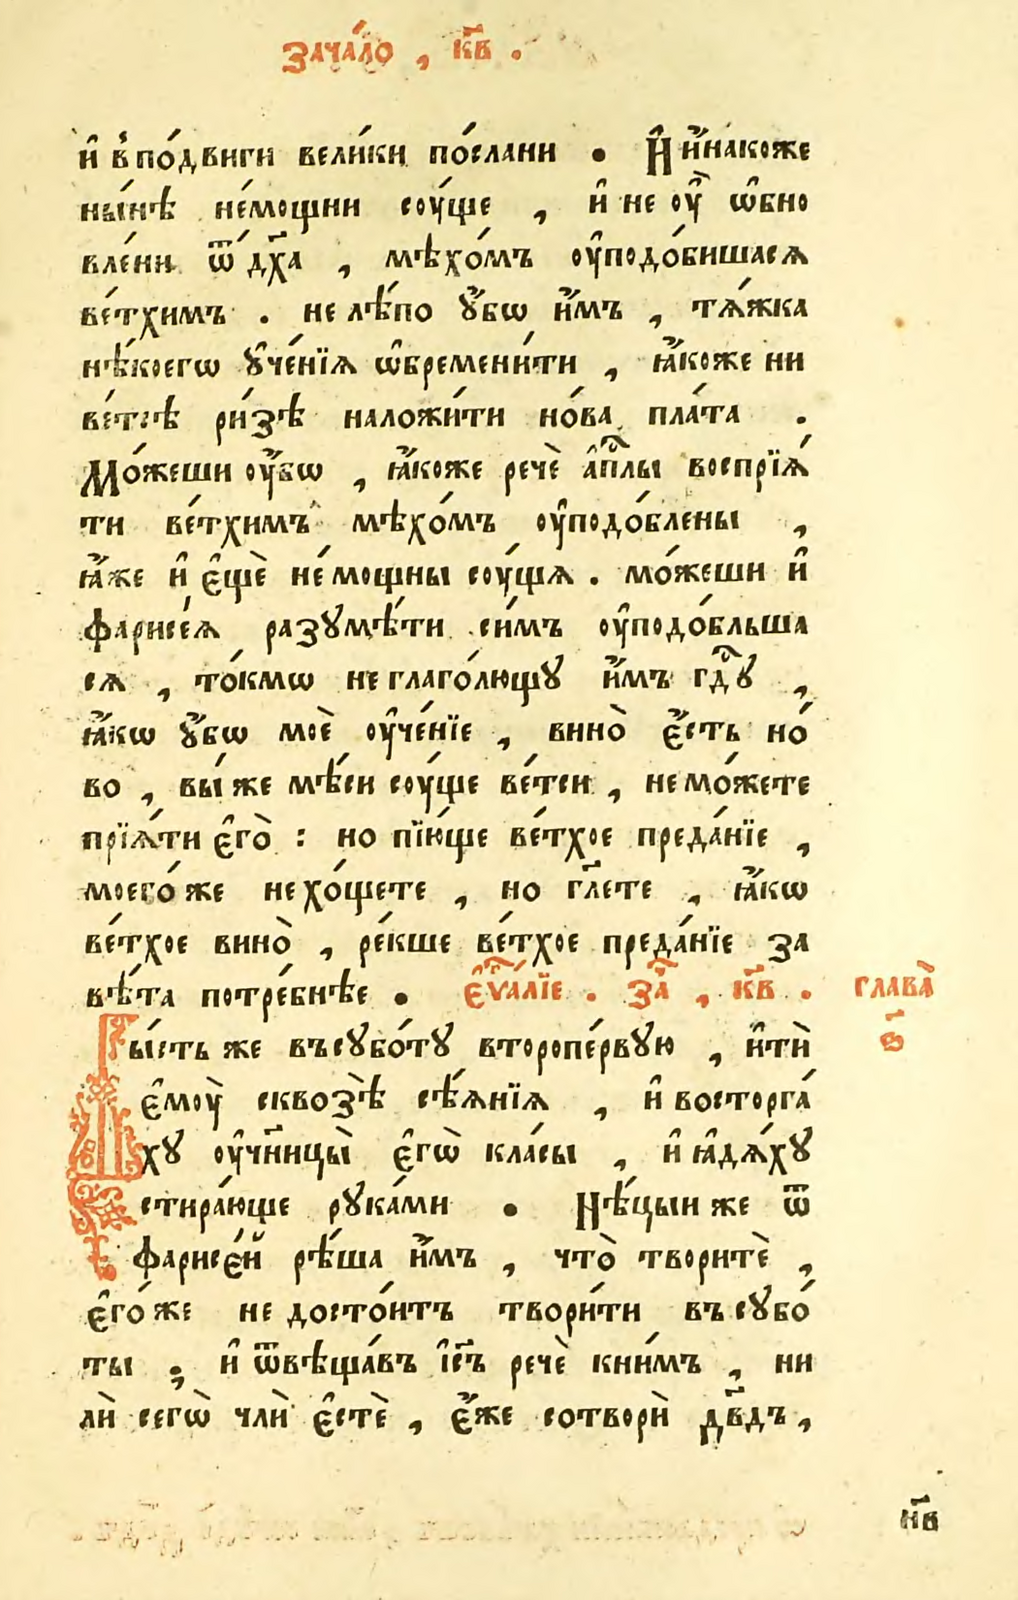 Зача́ло , к҃в .
и҆ в̾по́двиги вели́ки по́слани • И҆ и҆́накоже
ны́нѣ не́мощни соу́ще , и҆ не оу҆̀ ѡ҆бно
вле́ни ѿ д҃ха , мѣхо́мъ оу҆подо́бишася
ве́тхимъ . не лѣ́по ᲂу҆́бѡ и҆́мъ , тѧ́жка
нѣ́коегѡ ᲂу҆че́нїѧ ѡ҆бремени́ти , ꙗ҆́коже ни
ве́тсѣ ри́зѣ наложи́ти но́ва пла́та .
Мо́жеши оу҆́бѡ , ꙗ҆́коже речѐ а҆пⷭ҇лы воспрїѧ́
ти ве́тхимъ мѣхо́мъ оу҆подо́блены ,
ꙗ҆́же и҆ є҆щѐ не́мощны соу́щѧ . мо́жеши и҆
фарисе́ѧ разꙋмѣ́ти си́мъ оу҆подо́бльша
сѧ , то́кмѡ не глаго́лющꙋ и҆́мъ гдⷭ҇ꙋ ,
ꙗ҆́кѡ ꙋ҆́бѡ моѐ оу҆че́нїе , вино̀ є҆́сть но́
во , вы́ же мѣ́си соу́ще ве́тси , не мо́жете
прїѧ́ти є҆го̀ : но пїю́ще ве́тхое преда́нїе ,
моего́ же не хо́щете , но гл҃ете , ꙗ҆́кѡ
ве́тхое вино̀ , ре́кше ве́тхое преда́нїе за
вѣ́та потре́бнѣе • Є҆ѵⷢ҇а́лїе . заⷱ҇ , к҃в . глава̀
ѕ҃
Бы́сть же въ сꙋбо́тꙋ второпе́рвꙋю , и҆тѝ
є҆моу̀ сквозѣ̀ сѣ́ѧнїѧ , и҆ восторга́
хꙋ оу҆чн҃ицы̀ є҆гѡ̀ кла́сы , и҆ ꙗ҆дѧ́хꙋ
стира́юще рꙋка́ми • Нѣ́цыи же ѿ
фарисе́й рѣ́ша и҆́мъ , что̀ творитѐ ,
є҆го́ же не досто́итъ твори́ти въ сꙋбо́
ты ; и҆ ѿвѣща́въ і҆с҃ъ речѐ кни́мъ , ни
лѝ сегѡ̀ члѝ є҆стѐ , є҆́же сотворѝ дв҃дъ ,
н҃в